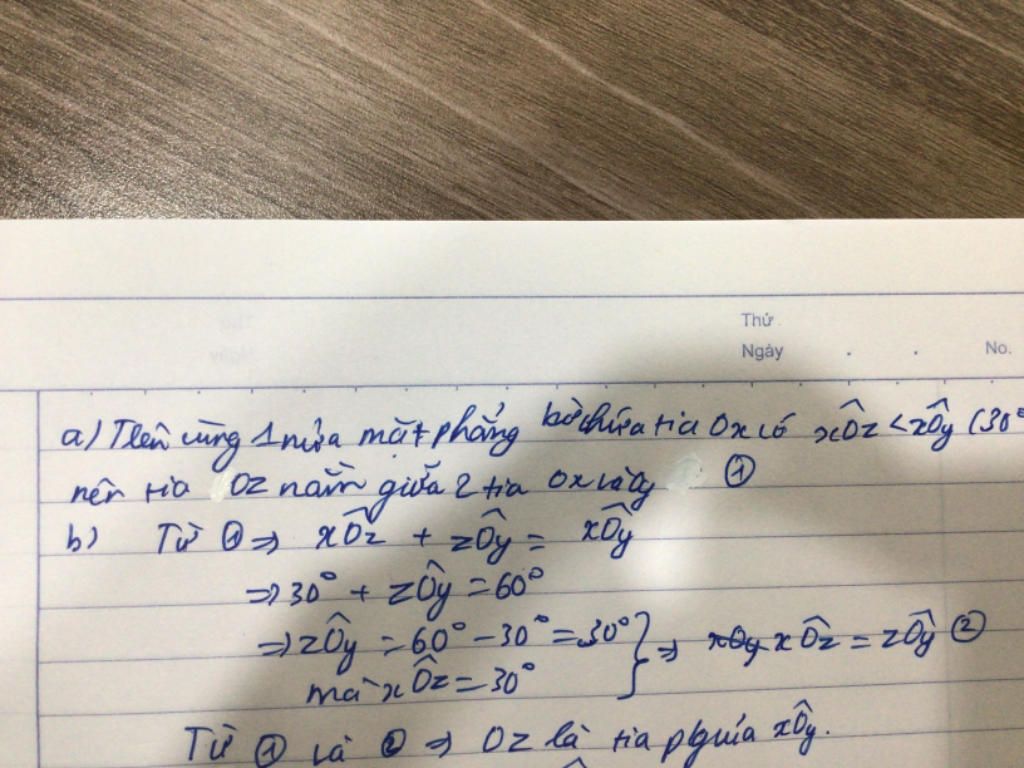 Thứ
Ngày . . No.
a) Trên cùng 1 nửa mặt phẳng bờ chứa tia Ox có xÔz < xÔy (30°
nên tia Oz nằm giữa 2 tia Ox và Oy ①
b) Từ ① => xÔz + zÔy = xÔy
=> 30° + zÔy = 60°
=> zÔy = 60° - 30° = 30° } => xÔz = zÔy ②
mà xÔz = 30°
Từ ① và ② => Oz là tia pgiác xÔy.